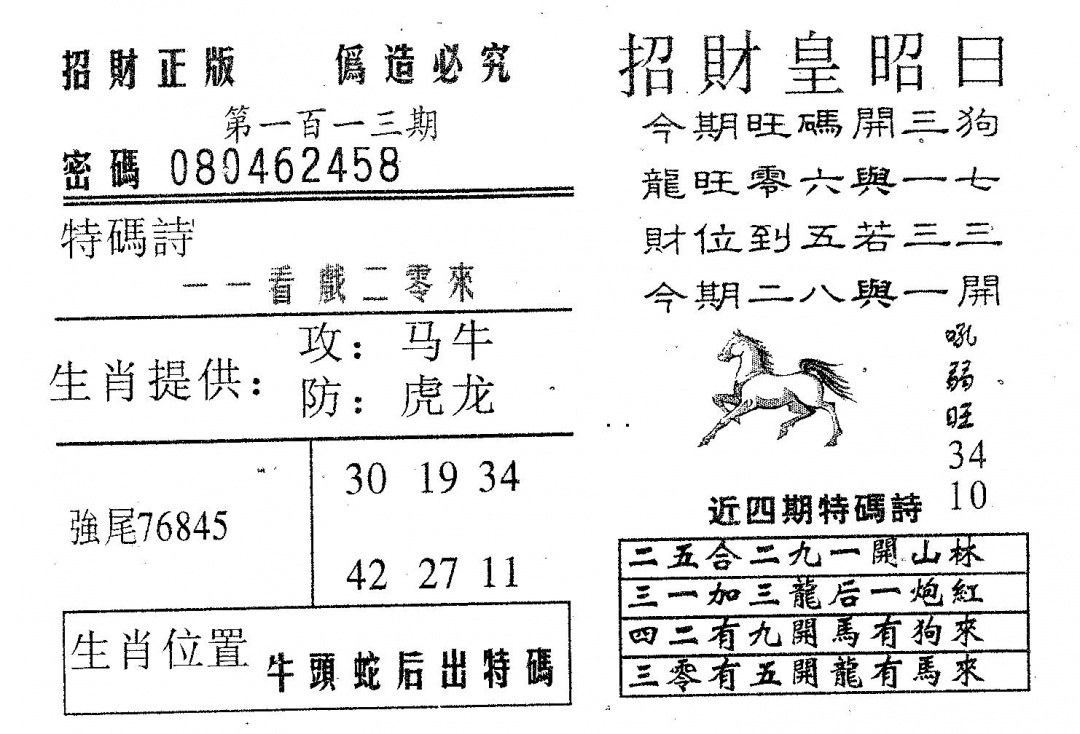 招財正版 僞造必究
第一百一三期
密碼 080462458
特碼詩
一一看戲二零來
生肖提供：
攻：马牛
防：虎龙
強尾76845
30 19 34
42 27 11
生肖位置
牛頭蛇后出特碼
招財皇昭日
今期旺碼開三狗
龍旺零六與一七
財位到五若三三
今期二八與一開
吼
弱
旺
34
10
近四期特碼詩
二五合二九一開山林
三一加三龍后一炮紅
四二有九開馬有狗來
三零有五開龍有馬來